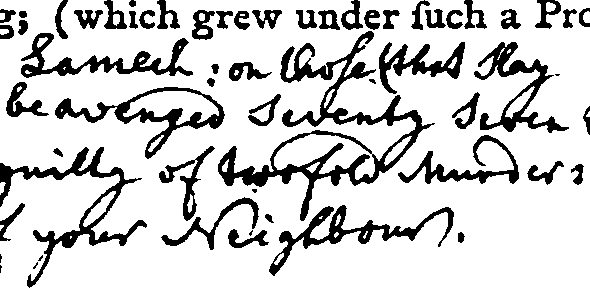 g; (which grew under ſuch a Pro
Lamech: on those (that Slay
be avenged Seventy Seven
guilty of twofold Murder:
your Neighbour.